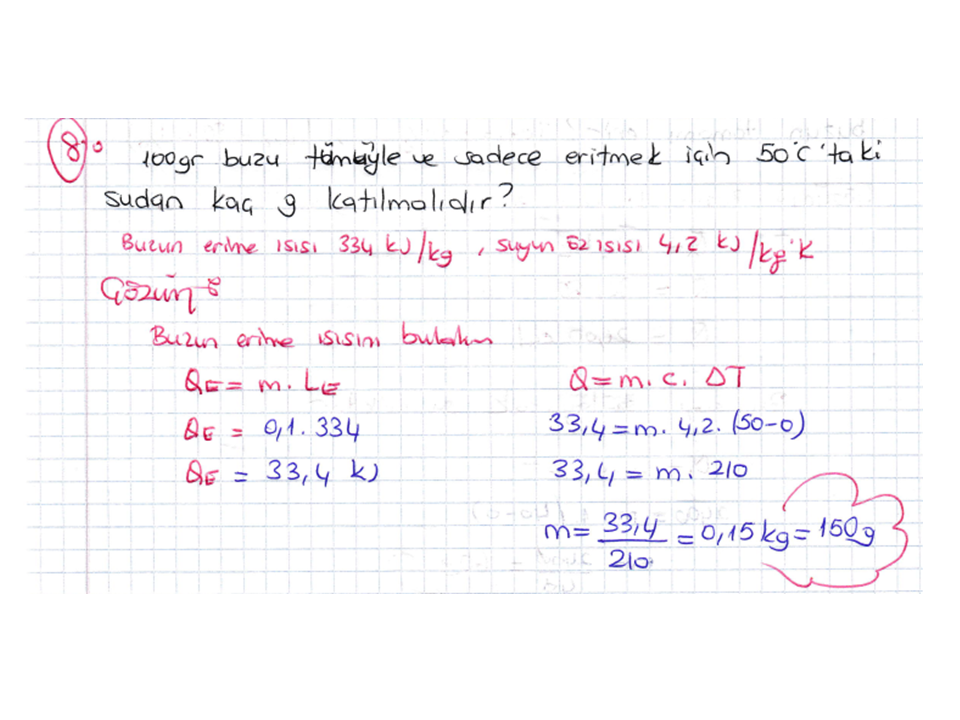 8)
100gr buzu tümüyle ve sadece eritmek için 50°C'taki
sudan kaç g katılmalıdır?
Buzun erime ısısı 334 kJ/kg, suyun öz ısısı 4,2 kJ/kg°K
Çözüm:
Buzun erime ısısını bulalım
QE = m. LE
QE = 0,1. 334
QE = 33,4 kJ
Q = m. c. ΔT
33,4 = m. 4,2. (50-0)
33,4 = m. 210
m = 33,4/210 = 0,15 kg = 150g